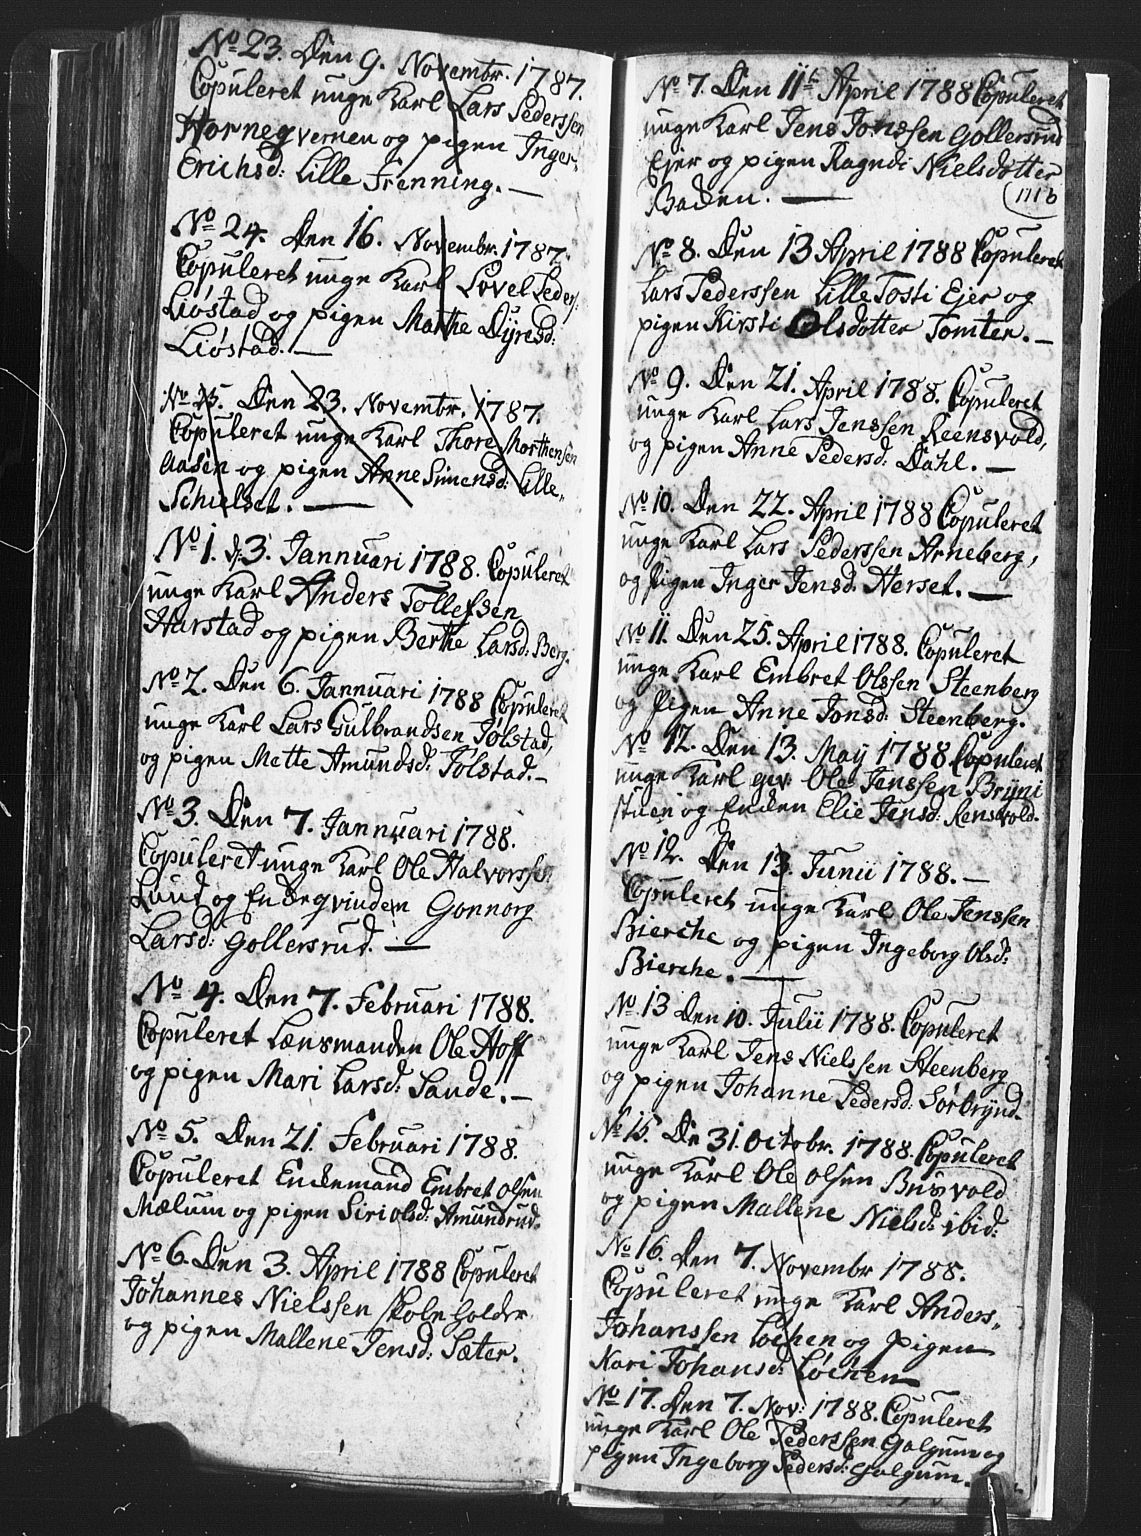 No 23. Den 9. Novembr. 1787.
Copuleret unge Karl Lars Pederssen
Hornegvernen og pigen Inger
Erichsd: Lille Frenning. —
No 24. Den 16. Novembr. 1787.
Copuleret unge Karl Lovel Peders:
Liøstad og pigen Marthe Dÿresd:
Liøstad. —
No 25. Den 23. Novembr. 1787.
Copuleret unge Karl Thore Morthensen
Aasen og pigen Anne Simensd: Lille-
Schielset. —
No 1. d: 3. Jannuari 1788. Copuleret
unge Karl Anders Tollefsen
Harstad og pigen Berthe Larsd: Berg.
No 2. Den 6. Jannuari 1788 Copuleret
unge Karl Lars Gulbrandsen Jølstad,
og pigen Mette Amundsd: Jølstad. —
No 3. Den 7. Jannuari 1788.
Copuleret unge Karl Ole Halvorssen
Lund og Enkegvinden Gonnorg
Larsd: Gollersrud. —
No 4. Den 7. Februari 1788.
Copuleret Lænsmanden Ole Hoff
og pigen Mari Larsd: Sande. —
No 5. Den 21. Februari 1788.
Copuleret Enkemand Embret Olsen
Mælum og pigen Siri Olsd: Amundrud.
No 6. Den 3. April 1788 Copuleret
Johannes Nielssen Skoleholder
og pigen Mallene Jensd: Sæter.
No 7. Den 11t April 1788 Copuleret
unge Karl Jens Jonssen Gollersrud
Ejer og pigen Ragndi Nielsdotter
Baden. —
111b
No 8. Den 13 April 1788 Copuleret
Lars Pederssen Lille Tosti Ejer og
pigen Kirsti Olsdotter Tomter. —
No 9. Den 21. April 1788. Copuleret
unge Karl Lars Jenssen Reensvold,
og pigen Anne Pedersd: Dahl. —
No 10. Den 22. April 1788 Copuleret
unge Karl Lars Pederssen Arneberg,
og pigen Inger Jensd: Herset. —
No 11. Den 25. April 1788. Copuleret
unge Karl Embret Olssen Steenberg
og Pigen Anne Jonsd: Steenberg.
No 12. Den 13. Maÿ 1788 Copuleret
unge Karl gev: Ole Jenssen Brÿni
stuen og Enken Elie Jensd: Rensvold.
No 12. Den 13. Junii 1788. —
Copuleret unge Karl Ole Jenssen
Bierche og pigen Ingeborg Olsd:
Bierche. —
No 13 Den 10. Julii 1788. Copuleret
unge Karl Jens Nielssen Steenberg
og pigen Johanne Pedersd: Sørbrÿnd.
No 15. De 31. Octobr. 1788. Copuleret
unge Karl Ole Olsen Busvold
og pigen Mallene Nielsd: ibid:
No 16. Den 7. Novembr 1788.
Copuleret unge Karl Anders
Johanssen Lochen og Pigen
Kari Johansd: Løchen —
No 17. Den 7. Nov: 1788. Copuleret
unge Karl Ole Pederssen Galgum og
pigen Ingeborg Pedersd: Galgum.